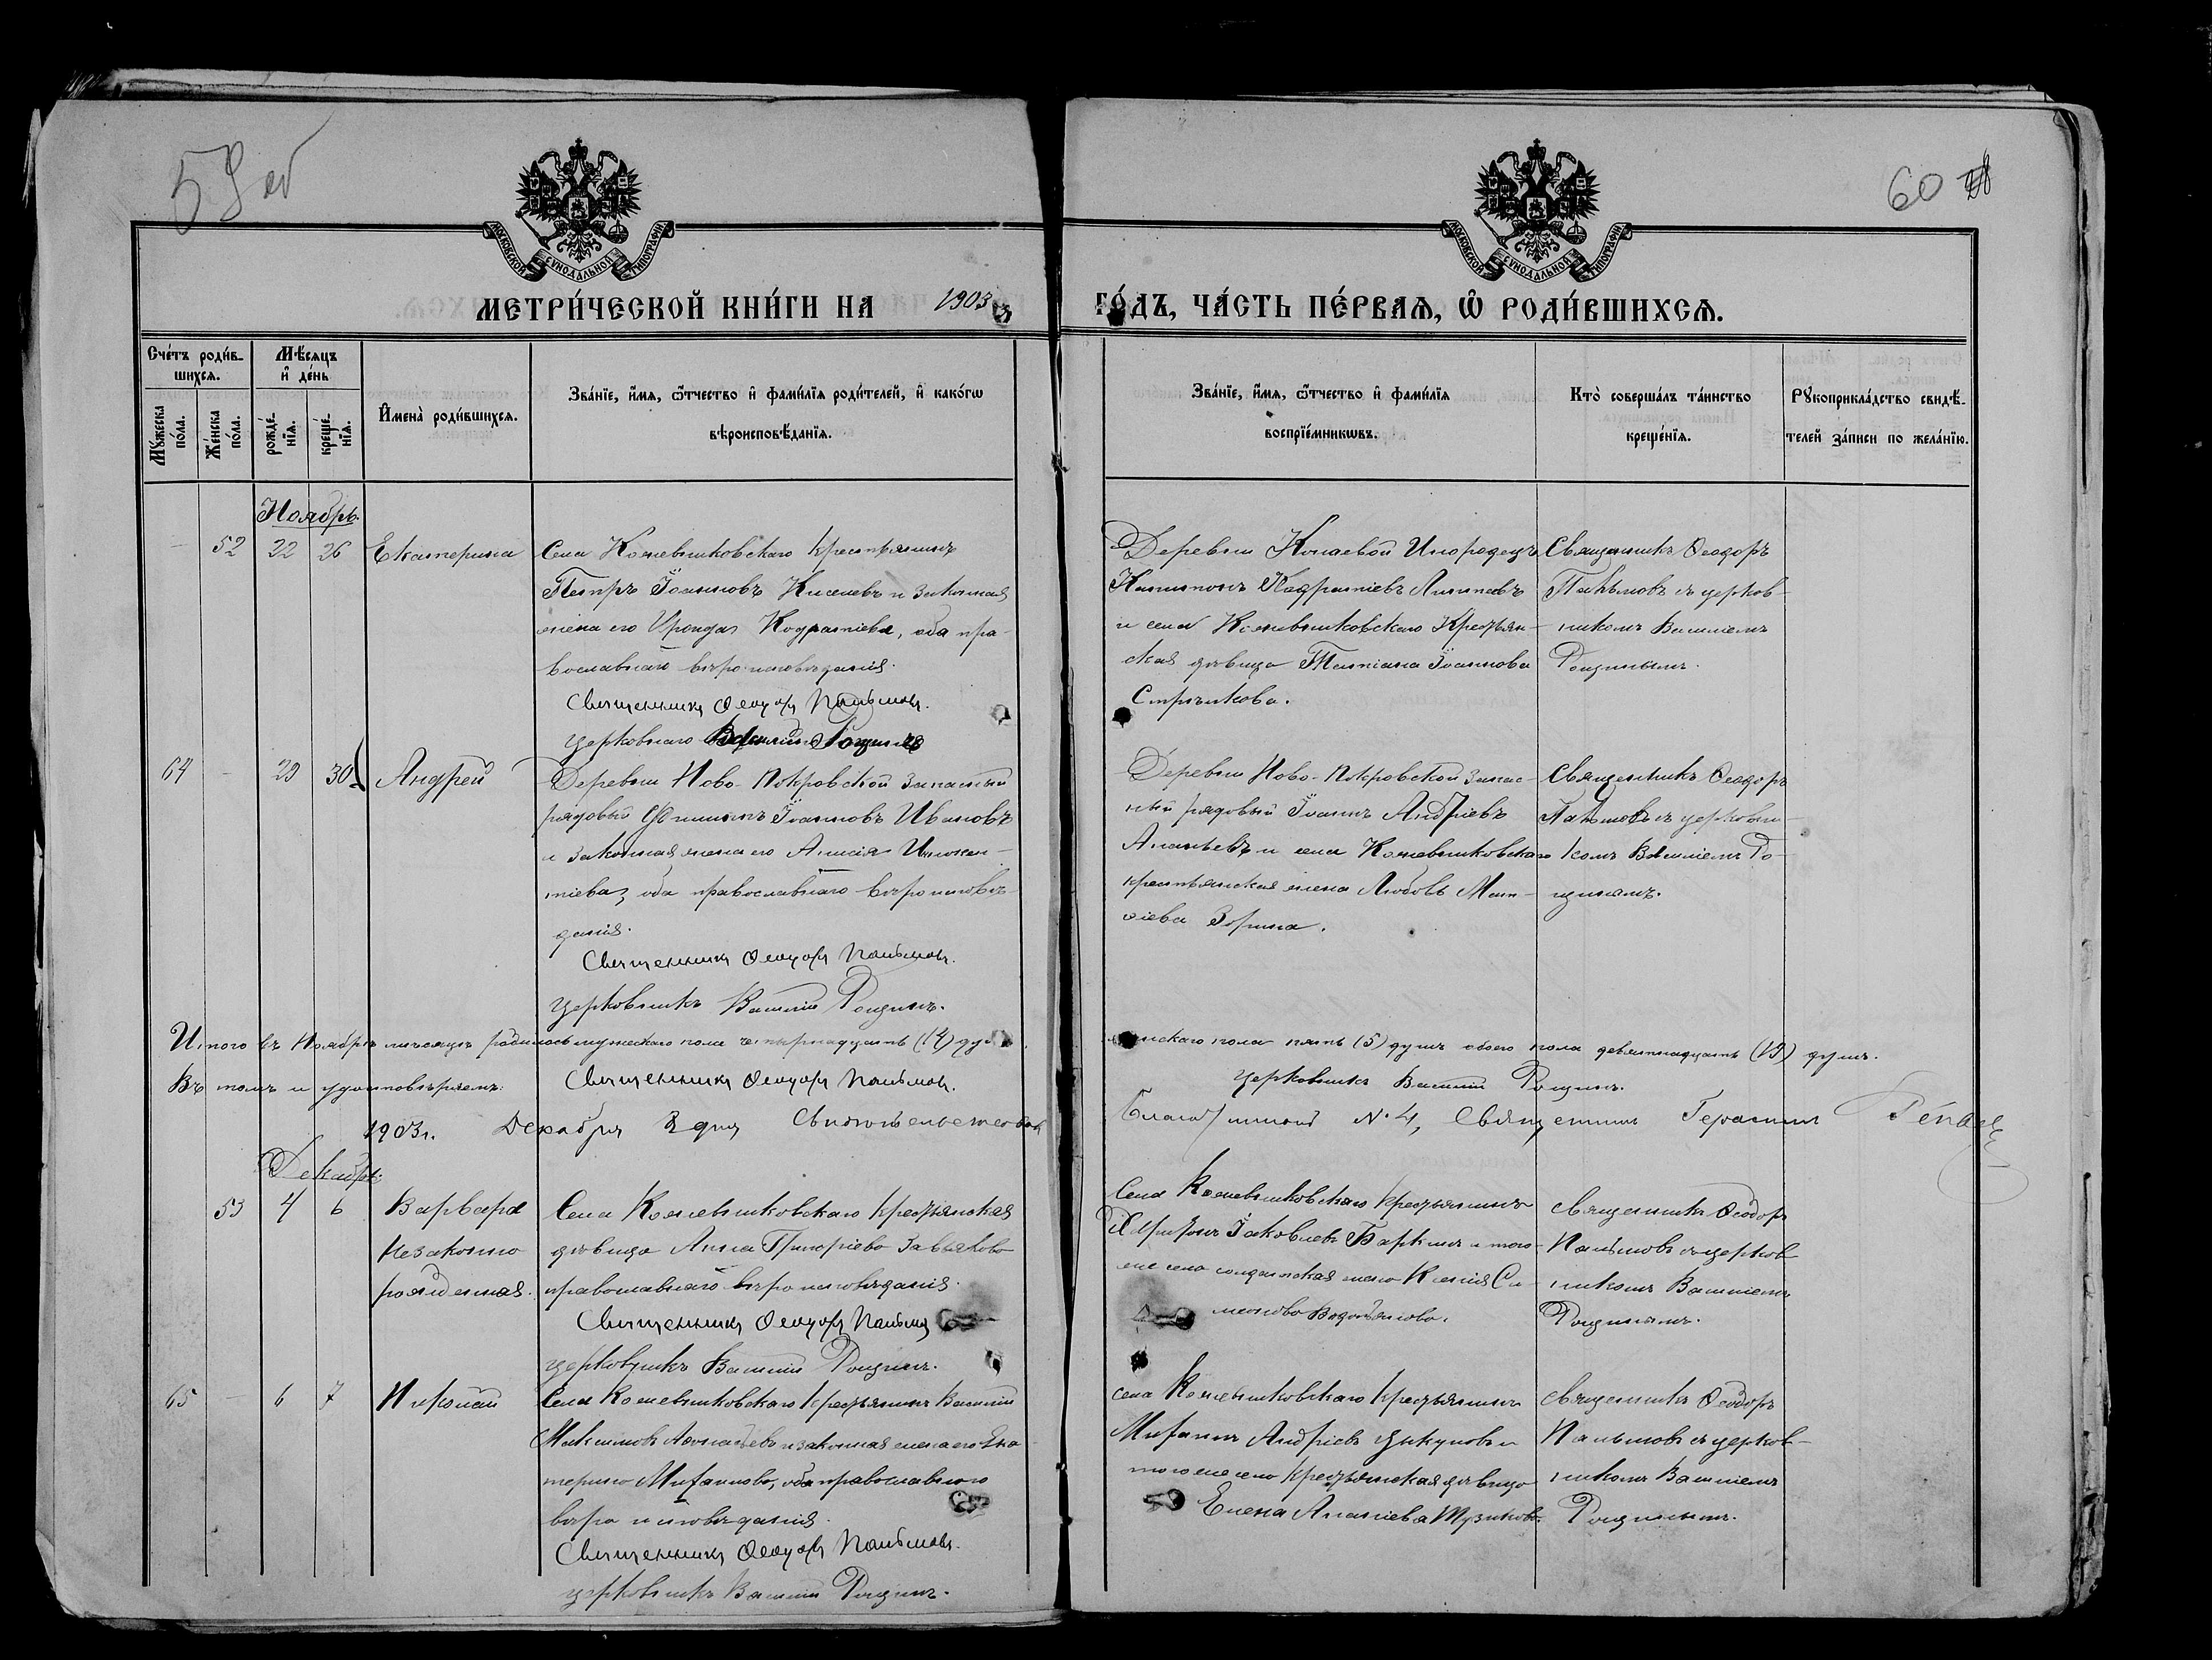 59 об
60
МОСКОВСКОЙ СѴНОДАЛЬНОЙ ТИПОГРАФІИ
МОСКОВСКОЙ СѴНОДАЛЬНОЙ ТИПОГРАФІИ
МЕТРИ́ЧЕСКОЙ КНИ́ГИ НА 1903
ГО́ДЪ, ЧА́СТЬ ПЕ́РВАѦ, Ѿ РОДИ́ВШИХСѦ.
Сче́тъ роди́в-
шихсѧ.
Мѣ́сѧцъ
и҆ де́нь
Мꙋ́жеска
по́ла.
Же́нска
по́ла.
рожде́-
нїѧ.
креще́-
нїѧ.
И҆мена̀ роди́вшихсѧ.
Зва́нїе, и҆́мѧ, ѻ҆́тчество и҆ фами́лїѧ роди́телей, и҆ како́гѡ
вѣроисповѣ́данїѧ.
Зва́нїе, и҆́мѧ, ѻ҆́тчество и҆ фами́лїѧ
воспрїе́мникѡвъ.
Кто̀ соверша́лъ та́инство
креще́нїѧ.
Рꙋкоприкла́дство свидѣ́-
телей за́писи по жела́нїю.
Ноябрь.
52 22 26 Екатерина
Села Кожевниковскаго крестьянинъ
Петръ Іоанновъ Киселевъ и законная
жена его Кодратіева, оба пра-
вославнаго вѣроисповѣданія.
Священникъ Ѳеодоръ Пальмовъ.
Церковнаго Рощинъ
Деревни Инородецъ
Кодратіевъ
и села Кожевниковскаго Крестьян-
ская дѣвица Татіана Іоаннова
Стрѣлкова.
Священникъ Ѳеодоръ
Пальмовъ съ церков-
никомъ Василіемъ
Рощинымъ.
64 - 29 30 Андрей
Деревни Ново-Покровской Запасный
рядовый Филиппъ Іоанновъ Ивановъ
и законная жена его Анисія Иннокен-
тіева, оба православнаго вѣроисповѣ-
данія.
Священникъ Ѳеодоръ Пальмовъ.
Церковникъ Василій Рощинъ.
Деревни Ново-Покровской Запас-
ный рядовый Іоаннъ Андріевъ
Ананьевъ и села Кожевниковскаго
крестьянская жена Любовь Мат-
ѳіева Зорина.
Священникъ Ѳеодоръ
Пальмовъ съ церковни-
комъ Василіемъ Ро-
щинымъ.
Итого въ Ноябрѣ мѣсяцѣ родилось мужескаго пола четырнадцать (14) душ
женскаго пола пять (5) душъ обоего пола девятнадцать (19) душъ.
Въ томъ и удостовѣряемъ: Священникъ Ѳеодоръ Пальмовъ.
Церковникъ Василій Рощинъ.
1903 г. Декабря дня Свидѣтельствовалъ
Благочинный № 4, Священникъ Герасимъ
Декабрь.
53 4 6 Варвара
незаконно
рожденная.
Села Кожевниковскаго крестьянская
дѣвица Анна Григоріева Завьялова
православнаго вѣроисповѣданія.
Священникъ Ѳеодоръ Пальмовъ
Церковникъ Василій Рощинъ.
Села Кожевниковскаго крестьянинъ
Іаковлевъ и того-
же села солдатская жена Ксенія Си-
меонова Водовьянова.
Священникъ Ѳеодоръ
Пальмовъ съ церков-
никомъ Василіемъ
Рощинымъ.
65 - 6 7 Николай
Села Кожевниковскаго Крестьянинъ Василій
Максимовъ и законная жена его Ека-
терина Михаилова, оба православнаго
вѣроисповѣданія.
Священникъ Ѳеодоръ Пальмовъ.
Церковникъ Василій Рощинъ.
села Кожевниковскаго Крестьянинъ
Михаилъ Андріевъ и
того же села Крестьянская дѣвица
Елена Ананіева
Священникъ Ѳеодоръ
Пальмовъ съ церков-
никомъ Василіемъ
Рощинымъ.